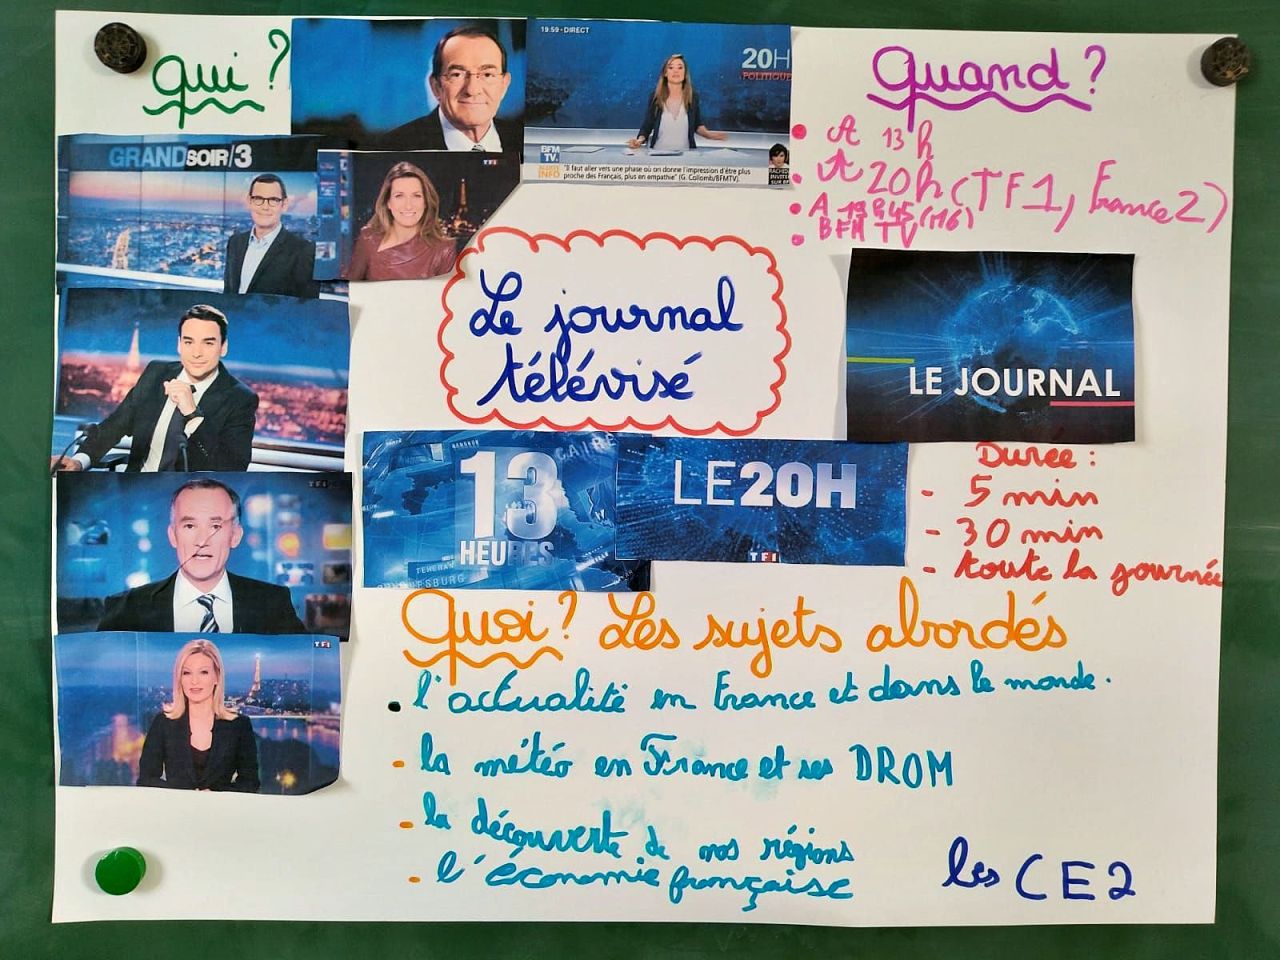 qui ?
19:59 - DIRECT
20H
POLITIQUE
BFM
TV.
INFO
"Il faut aller vers une phase où on donne l'impression d'être plus
proche des Français, plus en empathie" (G. Collomb/BFMTV).
GRAND SOIR/3
TF1
Quand ?
A 13 h
A 20h (TF1, France 2)
A 19 h 45 (M6)
BFM TV
Le journal
télévisé
LE JOURNAL
13
HEURES
BANGKOK
CAIRE
TEHERAN
LE20H
TF1
Duree :
- 5 min
- 30 min
- toute la journée
TF1
TF1
Quoi ? Les sujets abordés
• l'actualité en France et dans le monde.
- la météo en France et ses DROM
- la découverte de nos régions
- l'économie française
les CE2